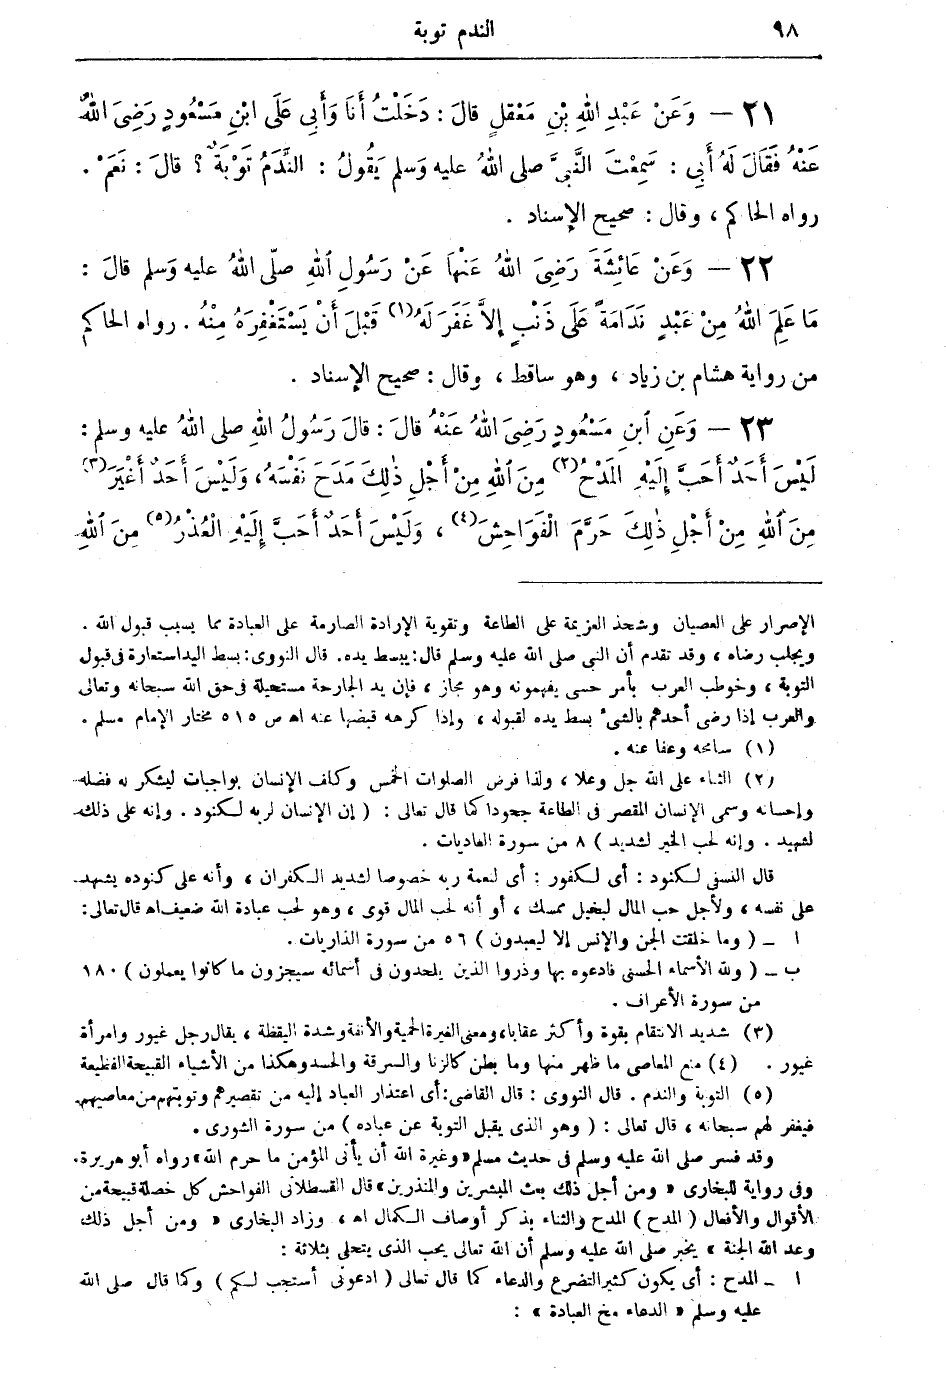 ٩٨
الندم توبة
٢١ — وَعَنْ عَبْدِ اللهِ بْنِ مَعْقِلٍ قالَ : دَخَلْتُ أَنَا وَأَبِى عَلَى ابْنِ مَسْعُودٍ رَضِىَ اللهُ
عَنْهُ فَقَالَ لَهُ أَبِى : سَمِعْتَ النَّبِىَّ صلى اللهُ عليه وَسلم يَقُولُ : النَّدَمُ تَوْبَةٌ ؟ قالَ : نَعَمْ .
رواه الحاكم ، وقال : صحيح الإسناد .
٢٢ — وَعَنْ عَائِشَةَ رَضِىَ اللهُ عَنْهَا عَنْ رَسُولِ اللهِ صلّى اللهُ عليه وَسلم قالَ :
مَا عَلِمَ اللهُ مِنْ عَبْدٍ نَدَامَةً عَلَى ذَنْبٍ إلاَّ غَفَرَ لَهُ (١) قَبْلَ أَنْ يَسْتَغْفِرَهُ مِنْهُ . رواه الحاكم
من رواية هشام بن زياد ، وهو ساقط ، وقال : صحيح الإسناد .
٢٣ — وَعَنِ ابنِ مَسْعُودٍ رَضِىَ اللهُ عَنْهُ قالَ : قالَ رَسُولُ اللهِ صلى اللهُ عليه وسلم :
لَيْسَ أَحَدٌ أَحَبَّ إِلَيْهِ المَدْحُ (٢) مِنَ اللهِ مِنْ أَجْلِ ذٰلِكَ مَدَحَ نَفْسَهُ ، وَلَيْسَ أَحَدٌ أَغْيَرَ (٣)
مِنَ اللهِ مِنْ أَجْلِ ذٰلِكَ حَرَّمَ الْفَوَاحِشَ (٤) ، وَلَيْسَ أَحَدٌ أَحَبَّ إِلَيْهِ الْعُذْرُ (٥) مِنَ اللهِ
الإصرار على العصيان وشحذ العزيمة على الطاعة وتقوية الإرادة الصارمة على العبادة مما يسبب قبول الله .
ويجلب رضاه ، وقد تقدم أن النبى صلى الله عليه وسلم قال : يبسط يده . قال النووى : بسط اليد استعارة فى قبول
التوبة ، وخوطب العرب بأمر حسى يفهمونه وهو مجاز ، فإن يد الجارحة مستحيلة فى حق الله سبحانه وتعالى
والعرب إذا رضى أحدهم بالشىء بسط يده لقبوله ، وإذا كرهه قبضها عنه اه ص ٥١٥ مختار الإمام مسلم .
(١) سامحه وعفا عنه .
(٢) الثناء على الله جل وعلا ، ولذا فرض الصلوات الخمس وكلف الإنسان بواجبات ليشكر له فضله
وإحسانه وسمى الإنسان المقصر فى الطاعة جحودا كما قال تعالى : ( إن الإنسان لربه لكنود . وإنه على ذلك
لشهيد . وإنه لحب الخير لشديد ) ٨ من سورة العاديات .
قال النسفى لكنود : أى لكفور : أى لنعمة ربه خصوصا لشديد الكفران ، وأنه على كنوده يشهد
على نفسه ، ولأجل حب المال لبخيل ممسك ، أو أنه لحب المال قوى ، وهو لحب عبادة الله ضعيف اه قال تعالى :
ا ـ ( وما خلقت الجن والإنس إلا ليعبدون ) ٥٦ من سورة الذاريات .
ب ـ ( ولله الأسماء الحسنى فادعوه بها وذروا الذين يلحدون فى أسمائه سيجزون ما كانوا يعملون ) ١٨٠
من سورة الأعراف .
(٣) شديد الانتقام بقوة وأكثر عقابا ، ومعنى الغيرة الحمية والأنفة وشدة اليقظة ، يقال رجل غيور وامرأة
غيور . (٤) منع المعاصى ما ظهر منها وما بطن كالزنا والسرقة والحسد وهكذا من الأشياء القبيحة الفظيعة
(٥) التوبة والندم . قال النووى : قال القاضى : أى اعتذار العباد إليه من تقصيرهم وتوبتهم من معاصيهم
فيغفر لهم سبحانه ، قال تعالى : ( وهو الذى يقبل التوبة عن عباده ) من سورة الشورى .
وقد فسر صلى الله عليه وسلم فى حديث مسلم « وغيرة الله أن يأتى المؤمن ما حرم الله » رواه أبو هريرة .
وفى رواية للبخارى « ومن أجل ذلك بعث المبشرين والمنذرين » قال القسطلانى الفواحش كل خصلة قبيحة من
الأقوال والأفعال ( المدح ) المدح والثناء بذكر أوصاف الكمال اه ، وزاد البخارى « ومن أجل ذلك
وعد الله الجنة » يخبر صلى الله عليه وسلم أن الله تعالى يحب الذى يتحلى بثلاثة :
ا ـ المدح : أى يكون كثير التضرع والدعاء كما قال تعالى ( ادعونى أستجب لكم ) وكما قال صلى الله
عليه وسلم « الدعاء مخ العبادة » :